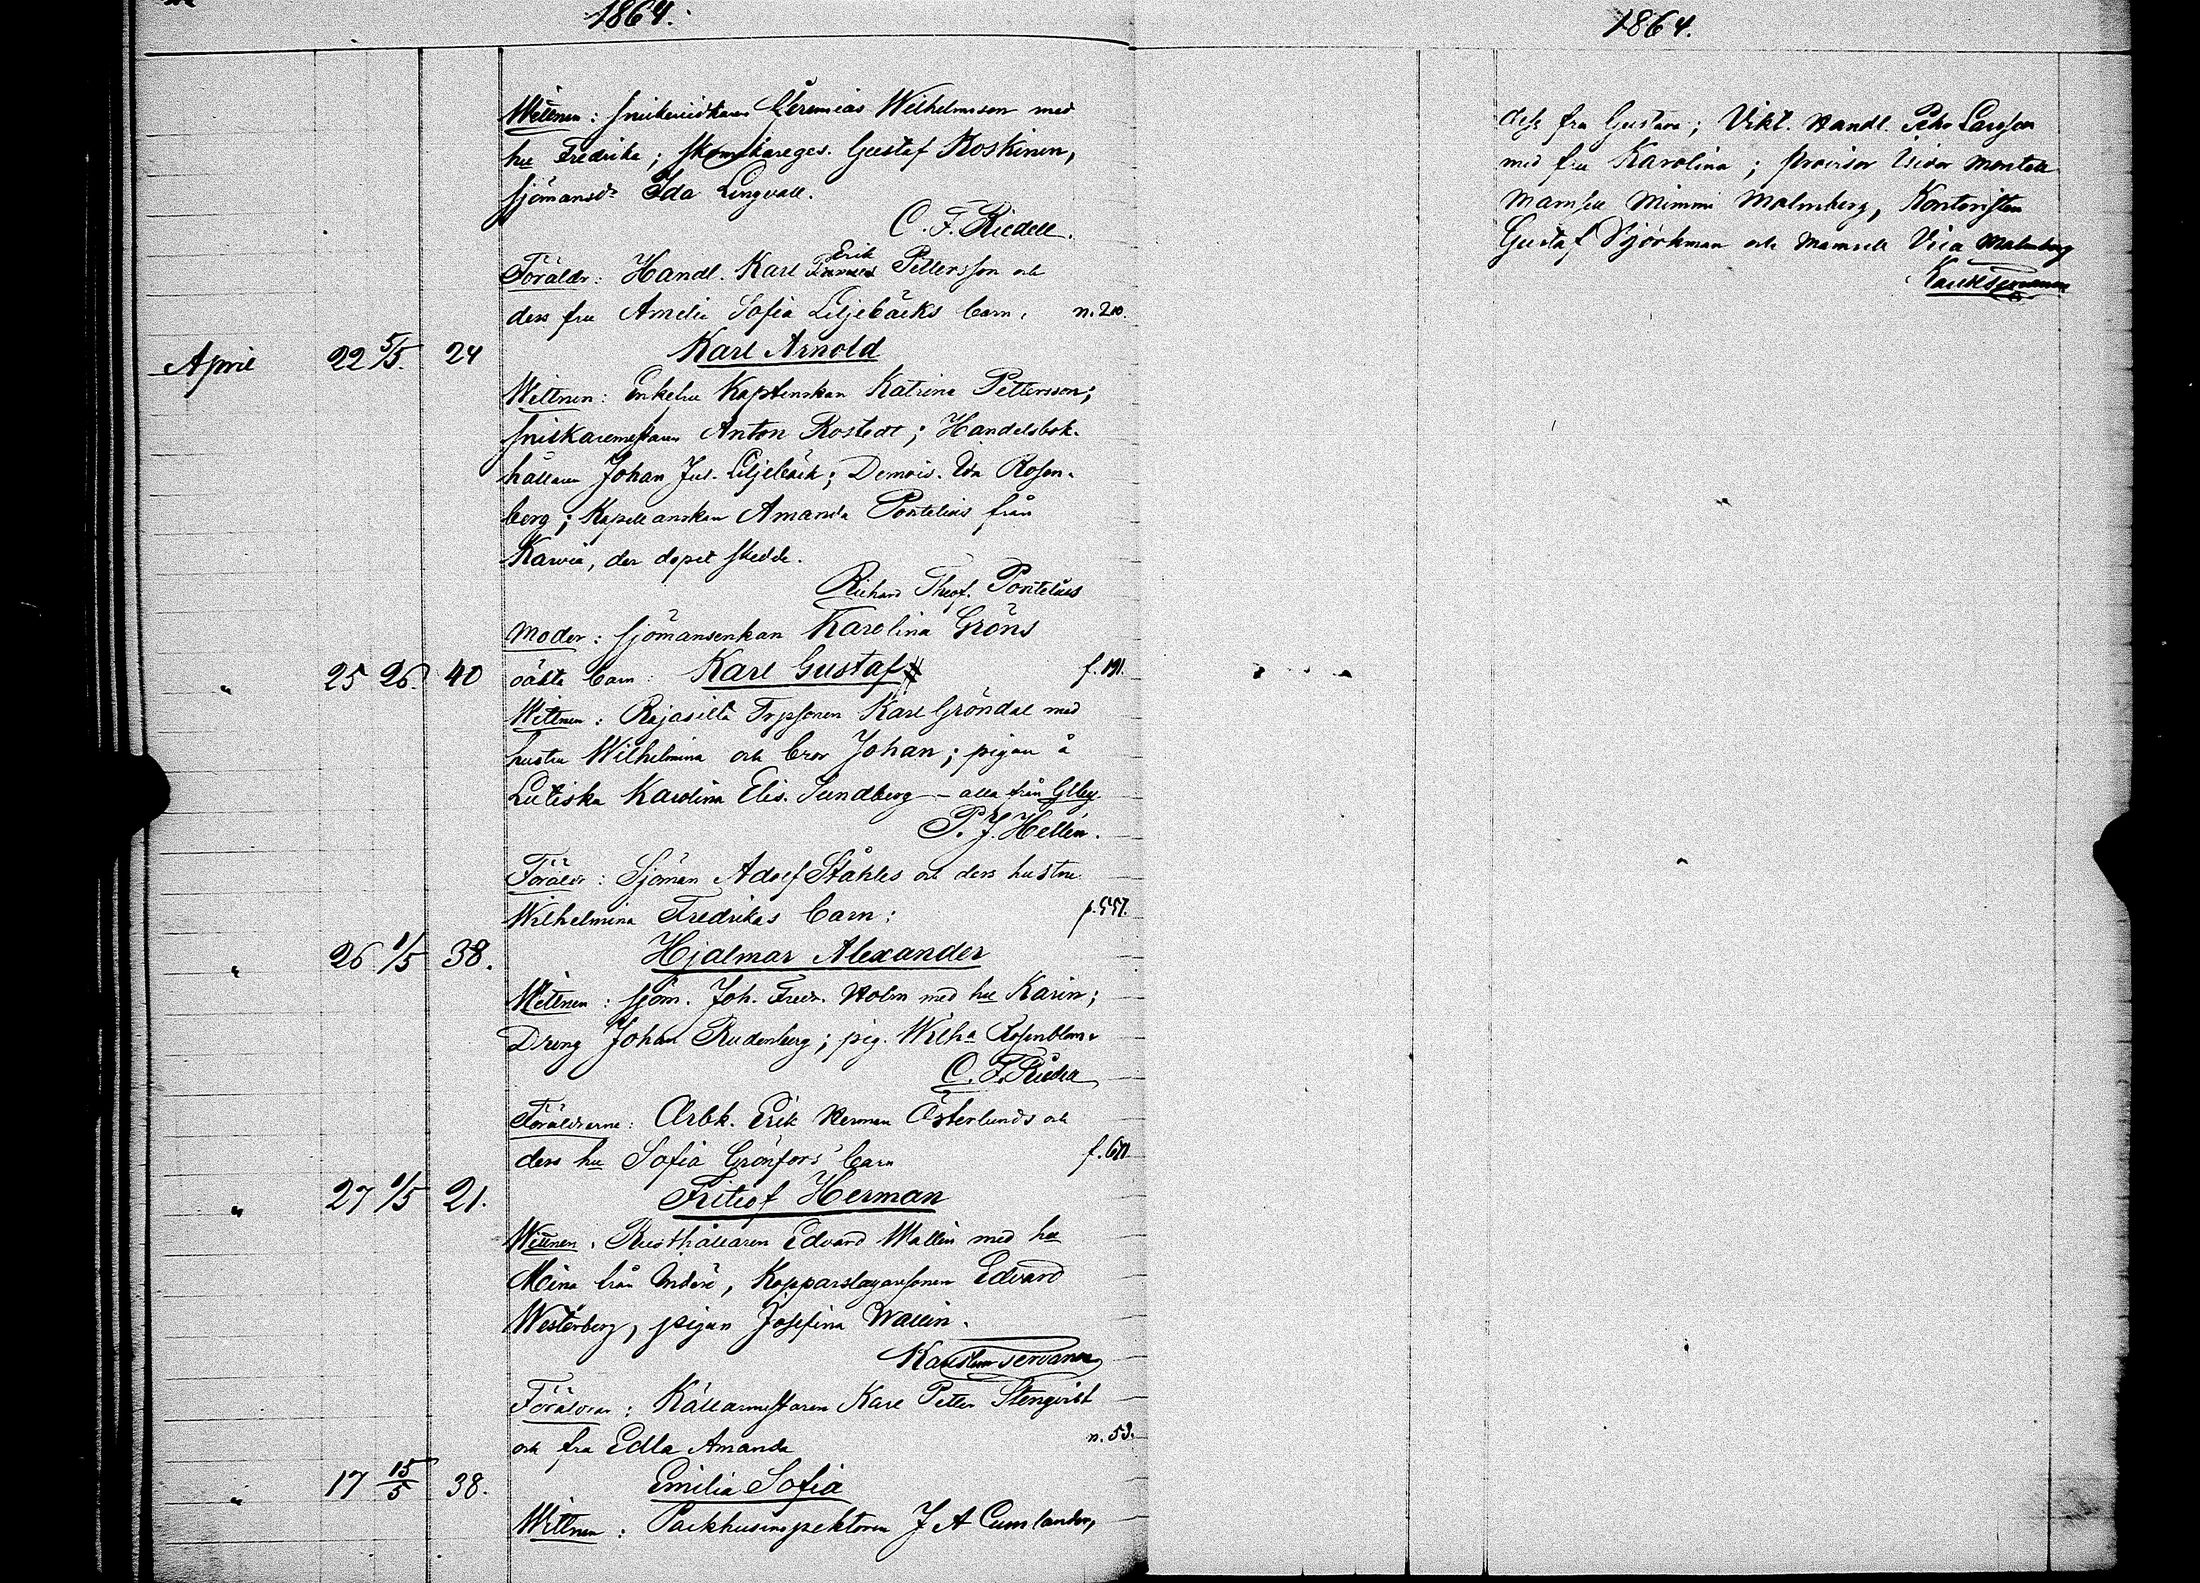 1864.
Wittnen: snickeriidkaren Jeremias Wilhelmsson med
hu Fredrika; skomakareges. Gustaf Koskinen,
sjömansd:r Ida Lingvall.
C. F. Riedell.
Föräldr: Handl. Karl Erik Pettersson och
dess fru Amelie Sofia Liljebäcks barn, n. 210.
April 22 5/5. 24 Karl Arnold
Wittnen: Enkefru Kaptenskan Katrina Pettersson;
snickaremästaren Anton Rostedt; Handelsbok-
hållaren Johan Jul. Liljebäck; Demois. Ida Rosen-
berg; Kapellanskan Amanda Pontelius från
Karvia, der dopet skedde.
Richard Theof. Pontelius
Moder: sjömansenkan Karolina Gröns
" 25 26. 40 oäkta barn: Karl Gustaf f. 191.
Wittnen: Rajasilta Torpsonen Karl Gröndal med
hustru Wilhelmina och bror Johan; pigan å
Lutiska Karolina Elis. Sundberg – alla från Glby
P. J. Hellén.
Föräldr: Sjöman Adolf Ståhles och dess hustru
Wilhelmina Fredrikas barn: p. 557.
" 26 1/5 38. Hjalmar Alexander
Wittnen: sjöm. Joh. Fredr. Holm med hu Karin;
Dreng Johan Rudenberg; pig. Wilh:a Rosenblom
C. F. Riedell
Föräldrarne: Arbk. Erik Herman Österlunds och
dess hu Sofia Grönfors' barn f. 671
" 27 1/5 21. Fritiof Herman
Wittnen: Rusthållaren Edvard Wallin med hu
Mina från Inderö, Kopparslagaresonen Edvard
Westerberg, pigan Josefina Wallin.
Karl Servanen
Föräldrar: Källarmästaren Karl Petter Stenqvist
och fru Edla Amanda n. 53.
" 17 15/5 38. Emilia Sofia
Wittnen: Packhusinspektoren J A Cumlander,
1864.
dess fru Gustava; Vikt. Handl. Petr Larsson
med fru Karolina; provisor Isidor Montell
Mamsell Mimmi Malmberg, Kontoristen
Gustaf Björkman och Mamsell Viva Malmberg
Karl Servanen